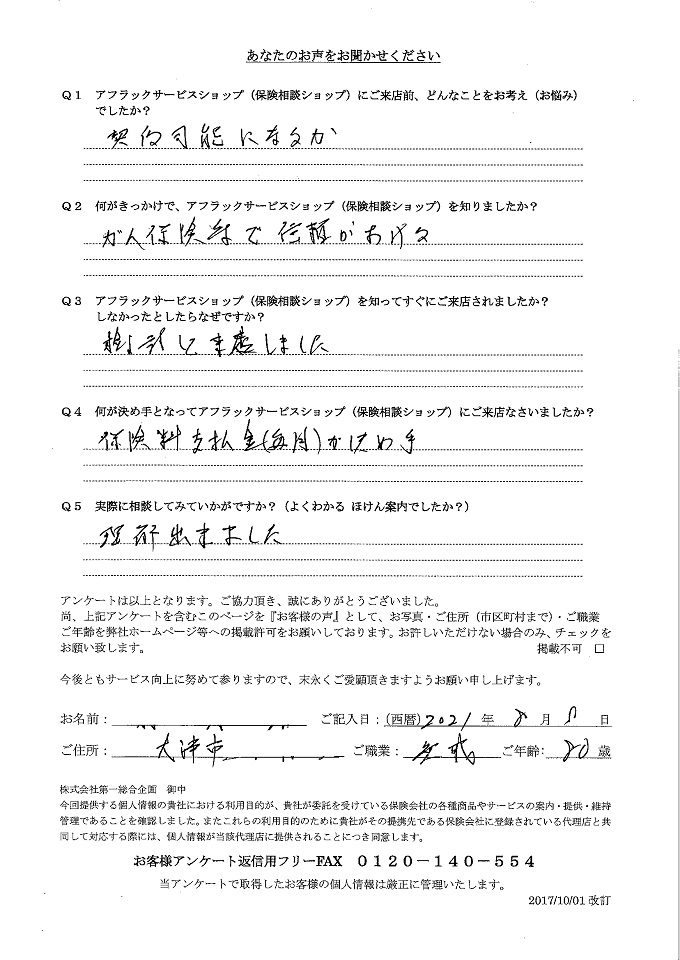 あなたのお声をお聞かせください
Q1 アフラックサービスショップ(保険相談ショップ)にご来店前、どんなことをお考え(お悩み)
でしたか?
契約可能になるか
Q2 何がきっかけで、アフラックサービスショップ(保険相談ショップ)を知りましたか?
がん保険等で信頼がおける
Q3 アフラックサービスショップ(保険相談ショップ)を知ってすぐにご来店されましたか?
しなかったとしたらなぜですか?
検討して来店しました
Q4 何が決め手となってアフラックサービスショップ(保険相談ショップ)にご来店なさいましたか?
保険料支払金(毎月)が決め手
Q5 実際に相談してみていかがですか?(よくわかる ほけん案内でしたか?)
理解出来ました
アンケートは以上となります。ご協力頂き、誠にありがとうございました。
尚、上記アンケートを含むこのページを『お客様の声』として、お写真・ご住所(市区町村まで)・ご職業
ご年齢を弊社ホームページ等への掲載許可をお願いしております。お許しいただけない場合のみ、チェックを
お願い致します。 掲載不可 □
今後ともサービス向上に努めて参りますので、末永くご愛顧頂きますようお願い申し上げます。
お名前: ご記入日:(西暦)2021年 8月 日
ご住所: 大津市 ご職業: 無職 ご年齢: 80歳
株式会社第一総合企画 御中
今回提供する個人情報の貴社における利用目的が、貴社が委託を受けている保険会社の各種商品やサービスの案内・提供・維持
管理であることを確認しました。またこれらの利用目的のために貴社がその提携先である保険会社に登録されている代理店と共
同して対応する際には、個人情報が当該代理店に提供されることにつき同意します。
お客様アンケート返信用フリーFAX 0120-140-554
当アンケートで取得したお客様の個人情報は厳正に管理いたします。
2017/10/01 改訂